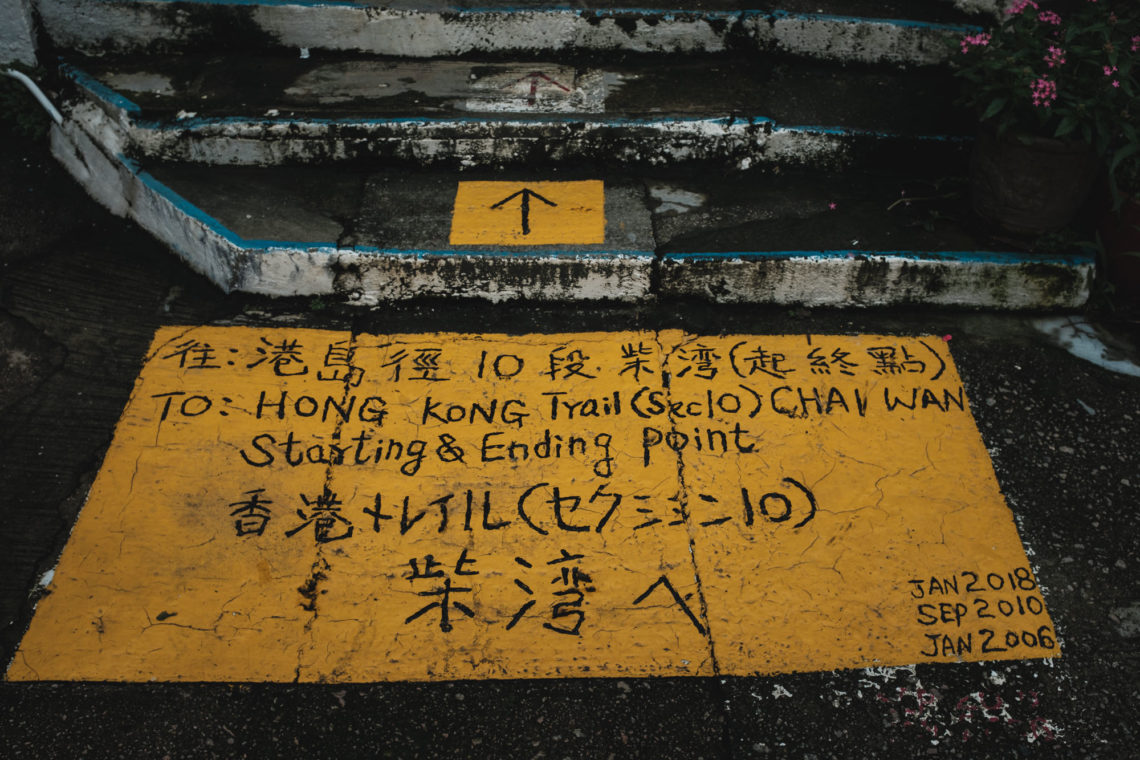 ↑
↑
往:港島徑 10 段 柴湾(起終點)
TO: HONG KONG Trail (Sec10) CHAI WAN
Starting & Ending point
香港トレイル(セクション10)
柴湾へ
JAN 2018
SEP 2010
JAN 2006